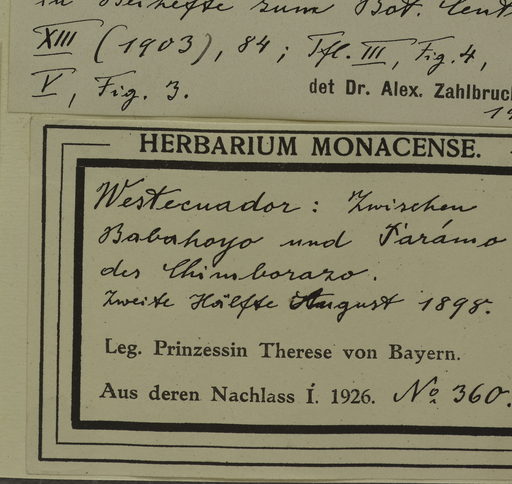 in Beihefte zum Bot. Cent
XIII (1903), 84; Tfl. III, Fig. 4,
V, Fig. 3.
det Dr. Alex. Zahlbruc
19
HERBARIUM MONACENSE.
Westecuador: Zwischen
Babahoyo und Páramo
des Chimborazo.
Zweite Hälfte August 1898.
Leg. Prinzessin Therese von Bayern.
Aus deren Nachlass Í. 1926. No 360.